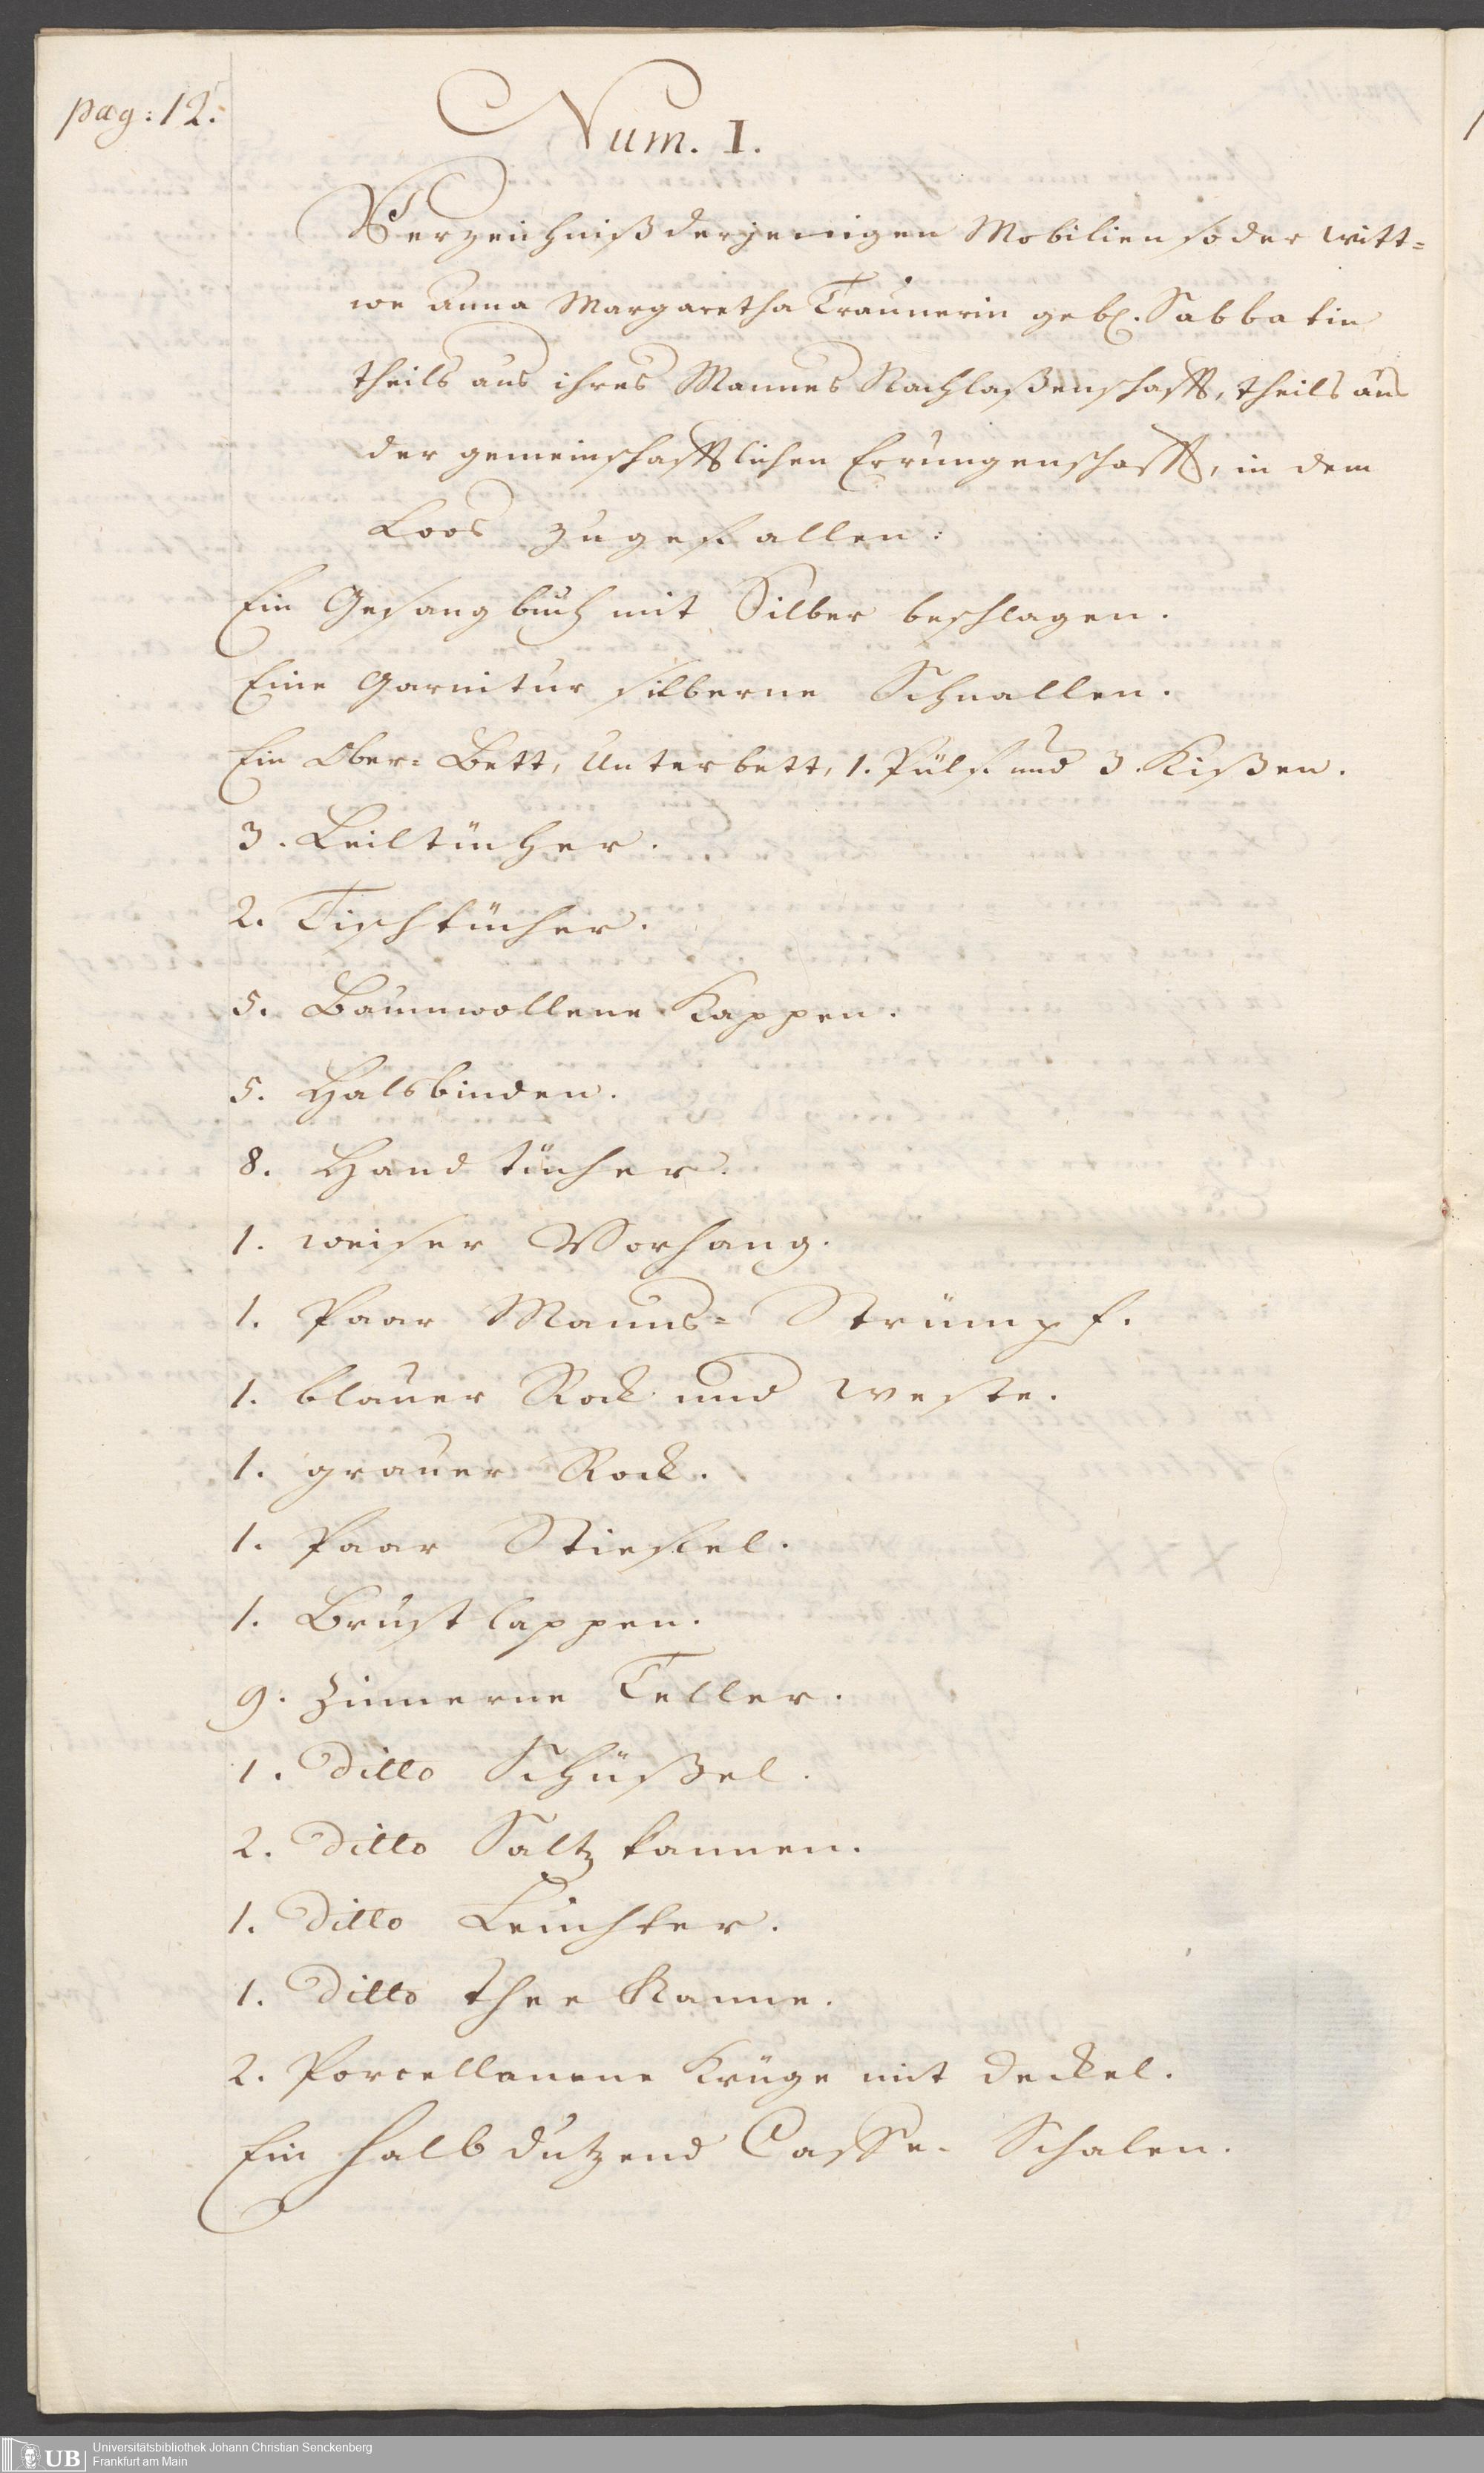 pag: 12.
Num. I.
Verzeichniß derjenigen Mobilien so der Witt=
we Anna Margaretha Traunerin geb. Sabbatin
theils aus ihres Mannes Nachlaßenschafft, theils aus
der gemeinschafftlichen Errungenschafft, in dem
Loos zugefallen:
Ein Gesangbuch mit Silber beschlagen.
Eine Garnitur silberne Schnallen.
Ein Ober= Bett, Unterbett, 1. Pülf und 3. Kißen.
3. Leiltücher.
2. Tischtücher.
5. Baumwollene Kappen.
5. Halsbinden.
8. Handtücher.
1. weiser Vorhang.
1. Paar Manns= Strümpf.
1. blauer Rock und Weste.
1. grauer Rock.
1. Paar Stiefel.
1. Brustlappen.
9. Zinnerne Teller.
1. Ditto Schüßel.
2. Ditto Saltz kannen.
1. Ditto Leuchter.
1. Ditto Thee Kanne.
2. Porcellanene Krüge mit Deckel.
Ein halb dutzend Caffe- Schalen.
UB
Universitätsbibliothek Johann Christian Senckenberg
Frankfurt am Main